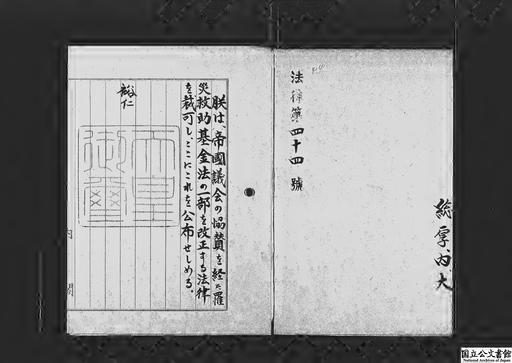 法律第四十四號
総、厚、内、大
朕は、帝國議会の協賛を経た罹
災救助基金法の一部を改正する法律
を裁可し、ここにこれを公布せしめる。
裕仁
天皇
御璽
内閣
国立公文書館
National Archives of Japan